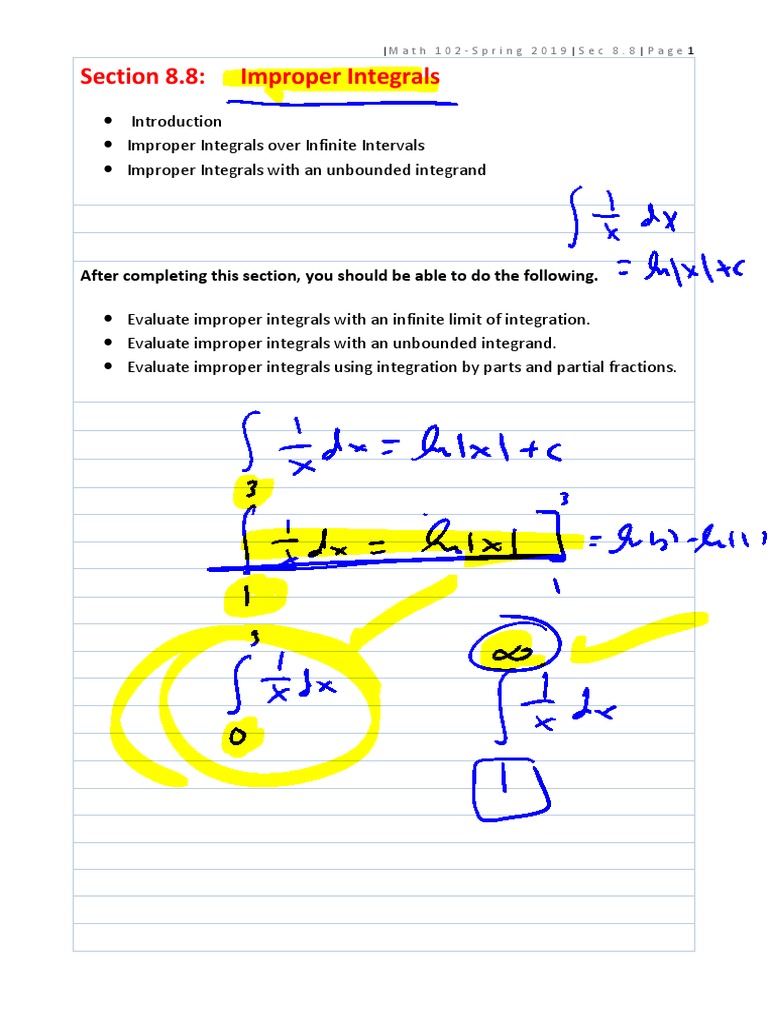 |Math 102-Spring 2019|Sec 8.8|Page 1
Section 8.8: Improper Integrals
• Introduction
• Improper Integrals over Infinite Intervals
• Improper Integrals with an unbounded integrand
∫ 1/x dx
= ln|x|+c
After completing this section, you should be able to do the following.
• Evaluate improper integrals with an infinite limit of integration.
• Evaluate improper integrals with an unbounded integrand.
• Evaluate improper integrals using integration by parts and partial fractions.
∫ 1/x dx = ln|x|+c
∫₁³ 1/x dx = ln|x| ]₁³ = ln(3)-ln(1)
∫₀³ 1/x dx ∫₁^∞ 1/x dx